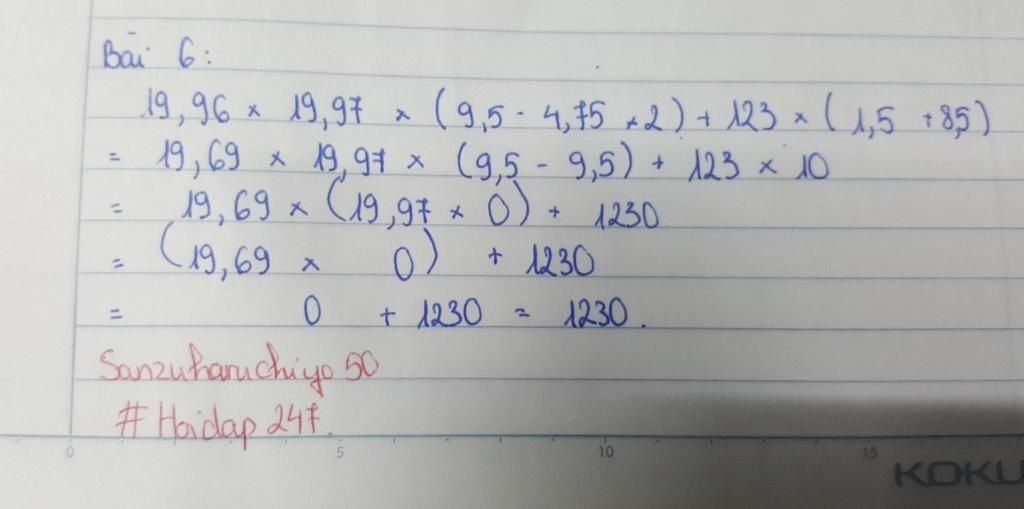 Bài 6:
19,96 × 19,97 × (9,5 - 4,75 × 2) + 123 × (1,5 + 8,5)
= 19,69 × 19,97 × (9,5 - 9,5) + 123 × 10
= 19,69 × (19,97 × 0) + 1230
= (19,69 × 0) + 1230
= 0 + 1230 = 1230.
Sanzuharuchiyo 50
# Hoidap 247.
0 5 10 15
KOKU